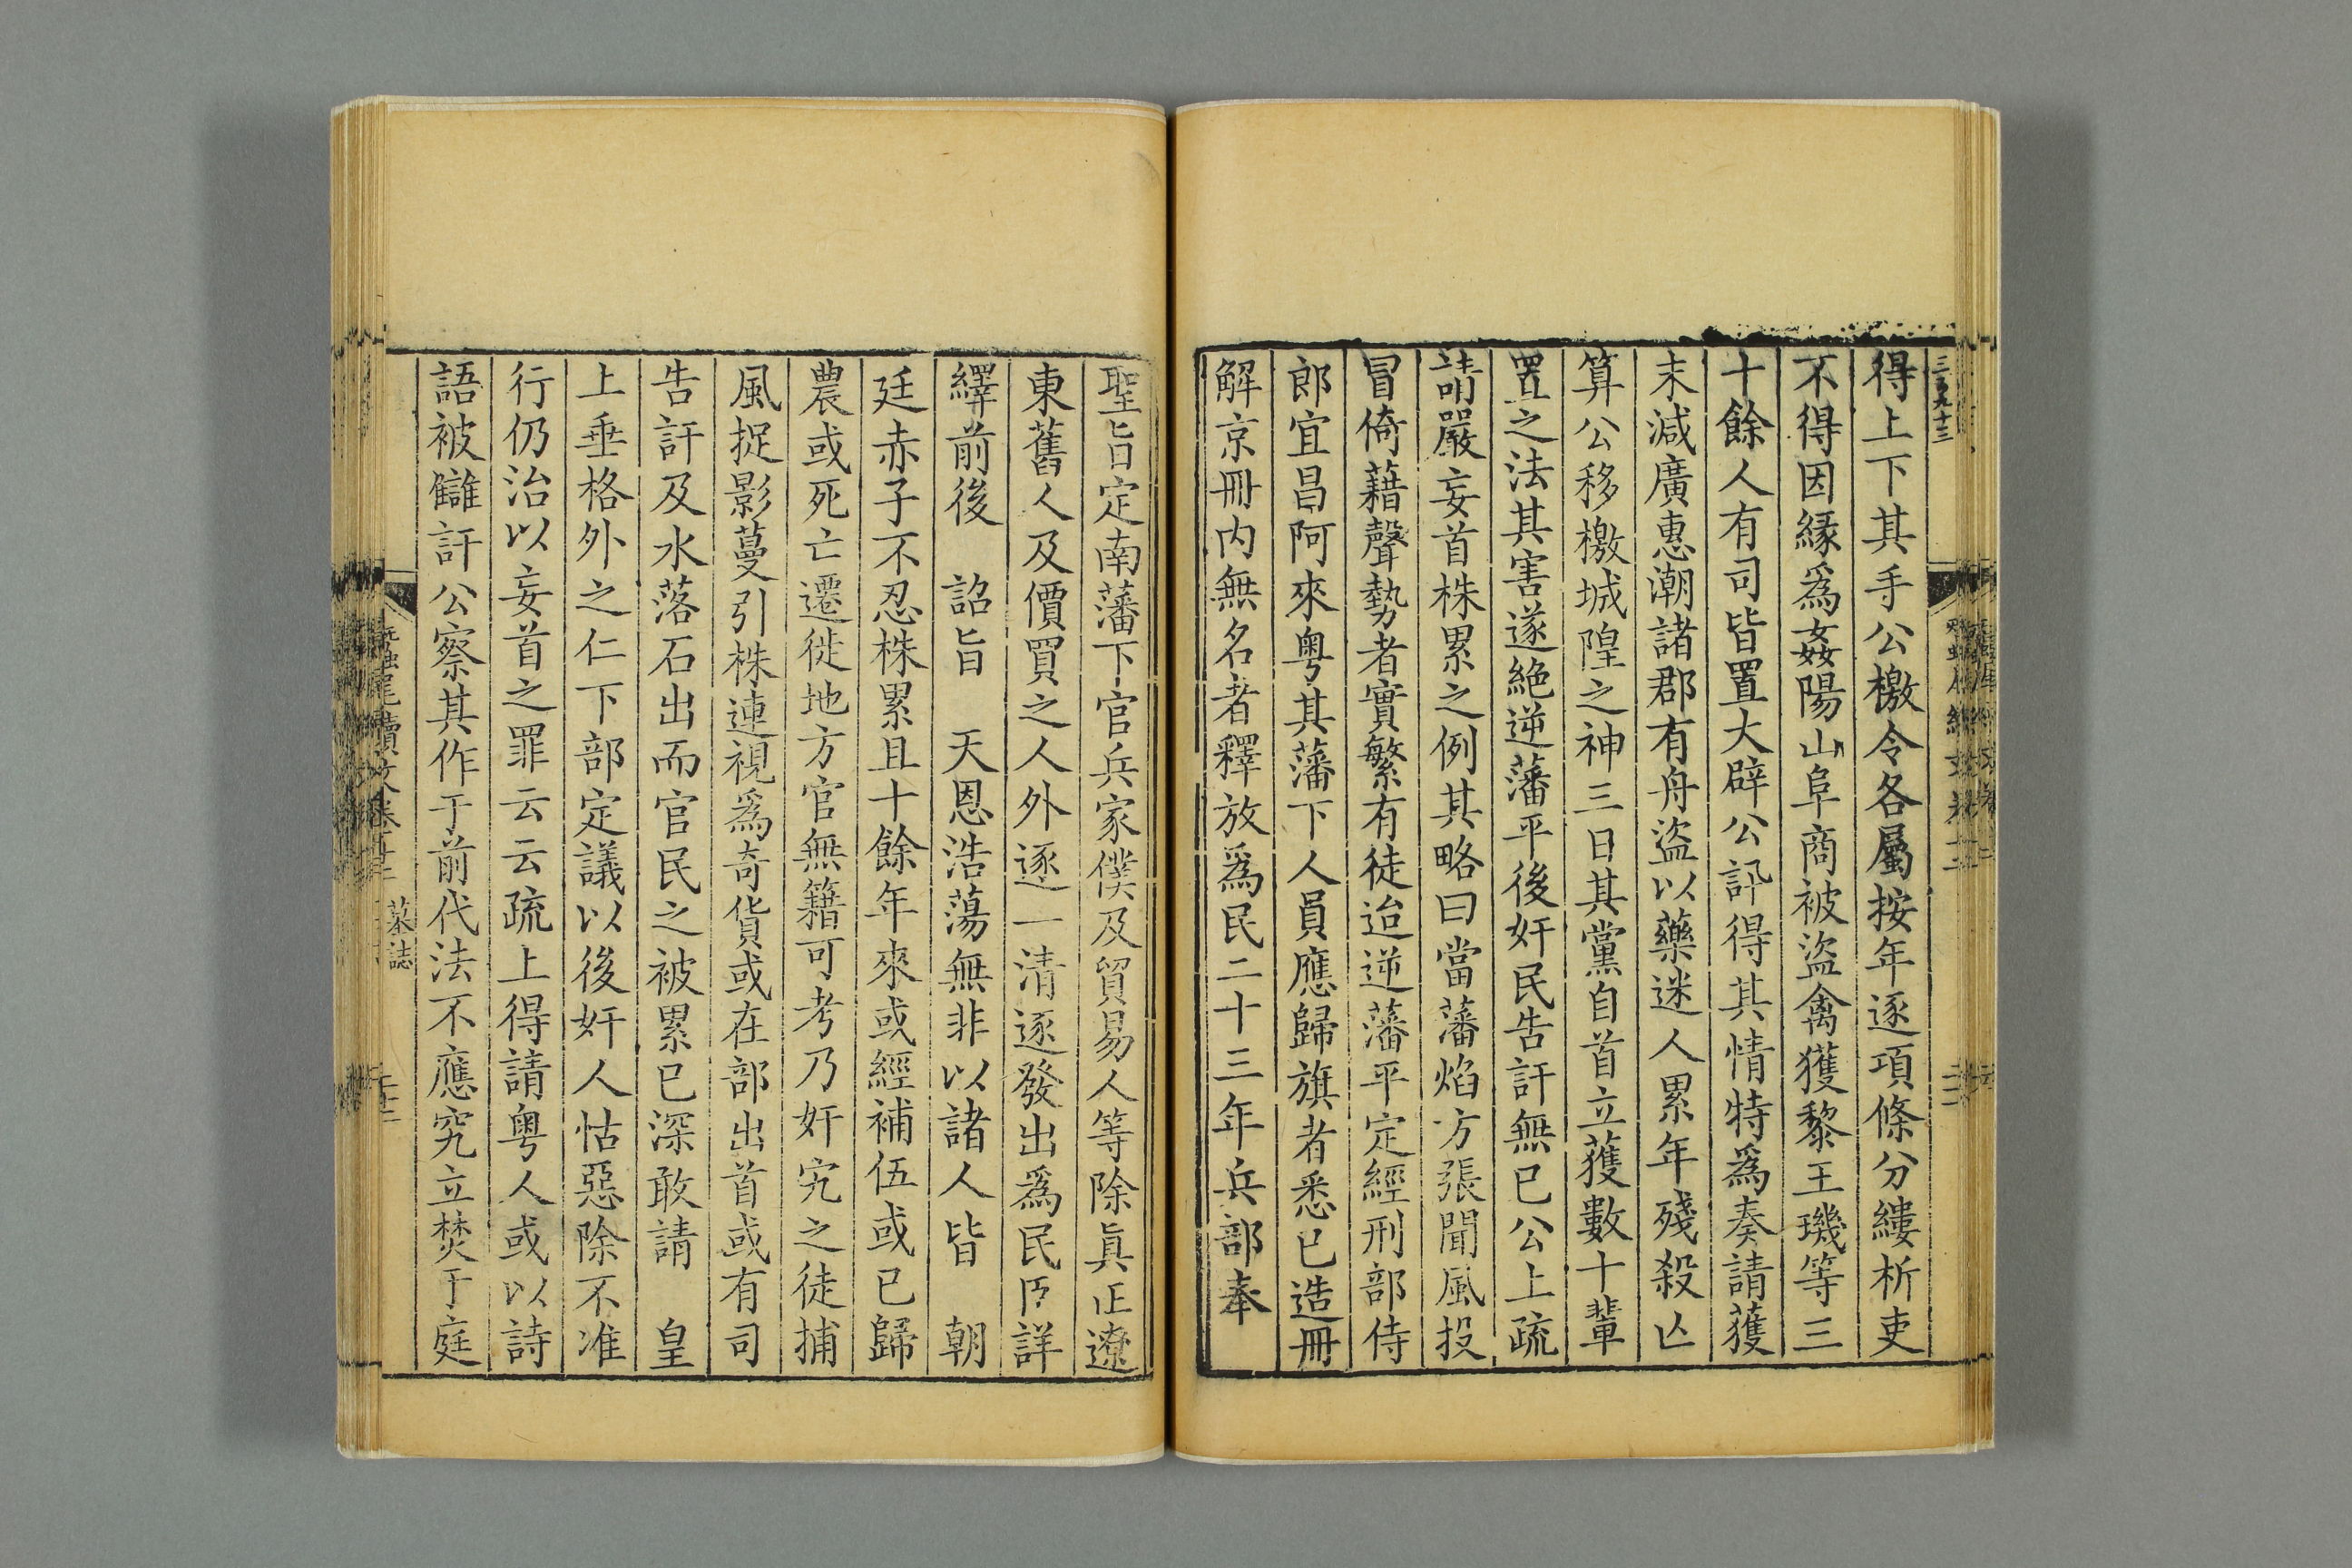 三百九十三
得上下其手公檄令各屬按年逐項條分縷析吏
不得因縁爲姦陽山阜商被盜禽獲黎王璣等三
十餘人有司皆置大辟公訊得其情特爲奏請獲
末減廣惠潮諸郡有舟盜以藥迷人累年殘殺亾
算公移檄城隍之神三日其黨自首立獲數十輩
置之法其害遂絶逆藩平後奸民告訐無已公上疏
請嚴妄首株累之例其略曰當藩焰方張聞風投
冒倚藉聲勢者實繁有徒迨逆藩平定經刑部侍
郎宜昌阿來粤其藩下人員應歸旗者悉已造冊
解京冊内無名者釋放爲民二十三年兵部奉
聖旨定南藩下官兵家僕及貿易人等除眞正遼
東舊人及價買之人外逐一清逐發出爲民所詳
繹前後　詔旨　天恩浩蕩無非以諸人皆　朝
廷赤子不忍株累且十餘年來或經補伍或已歸
農或死亡遷徙地方官無籍可考乃奸宄之徒捕
風捉影蔓引株連視爲奇貨或在部出首或有司
告訐及水落石出而官民之被累已深敢請　皇
上垂格外之仁下部定議以後奸人怙惡除不准
行仍治以妄首之罪云云疏上得請粤人或以詩
語被讎訐公察其作于前代法不應究立焚于庭
蠶尾續文卷十三
墓誌